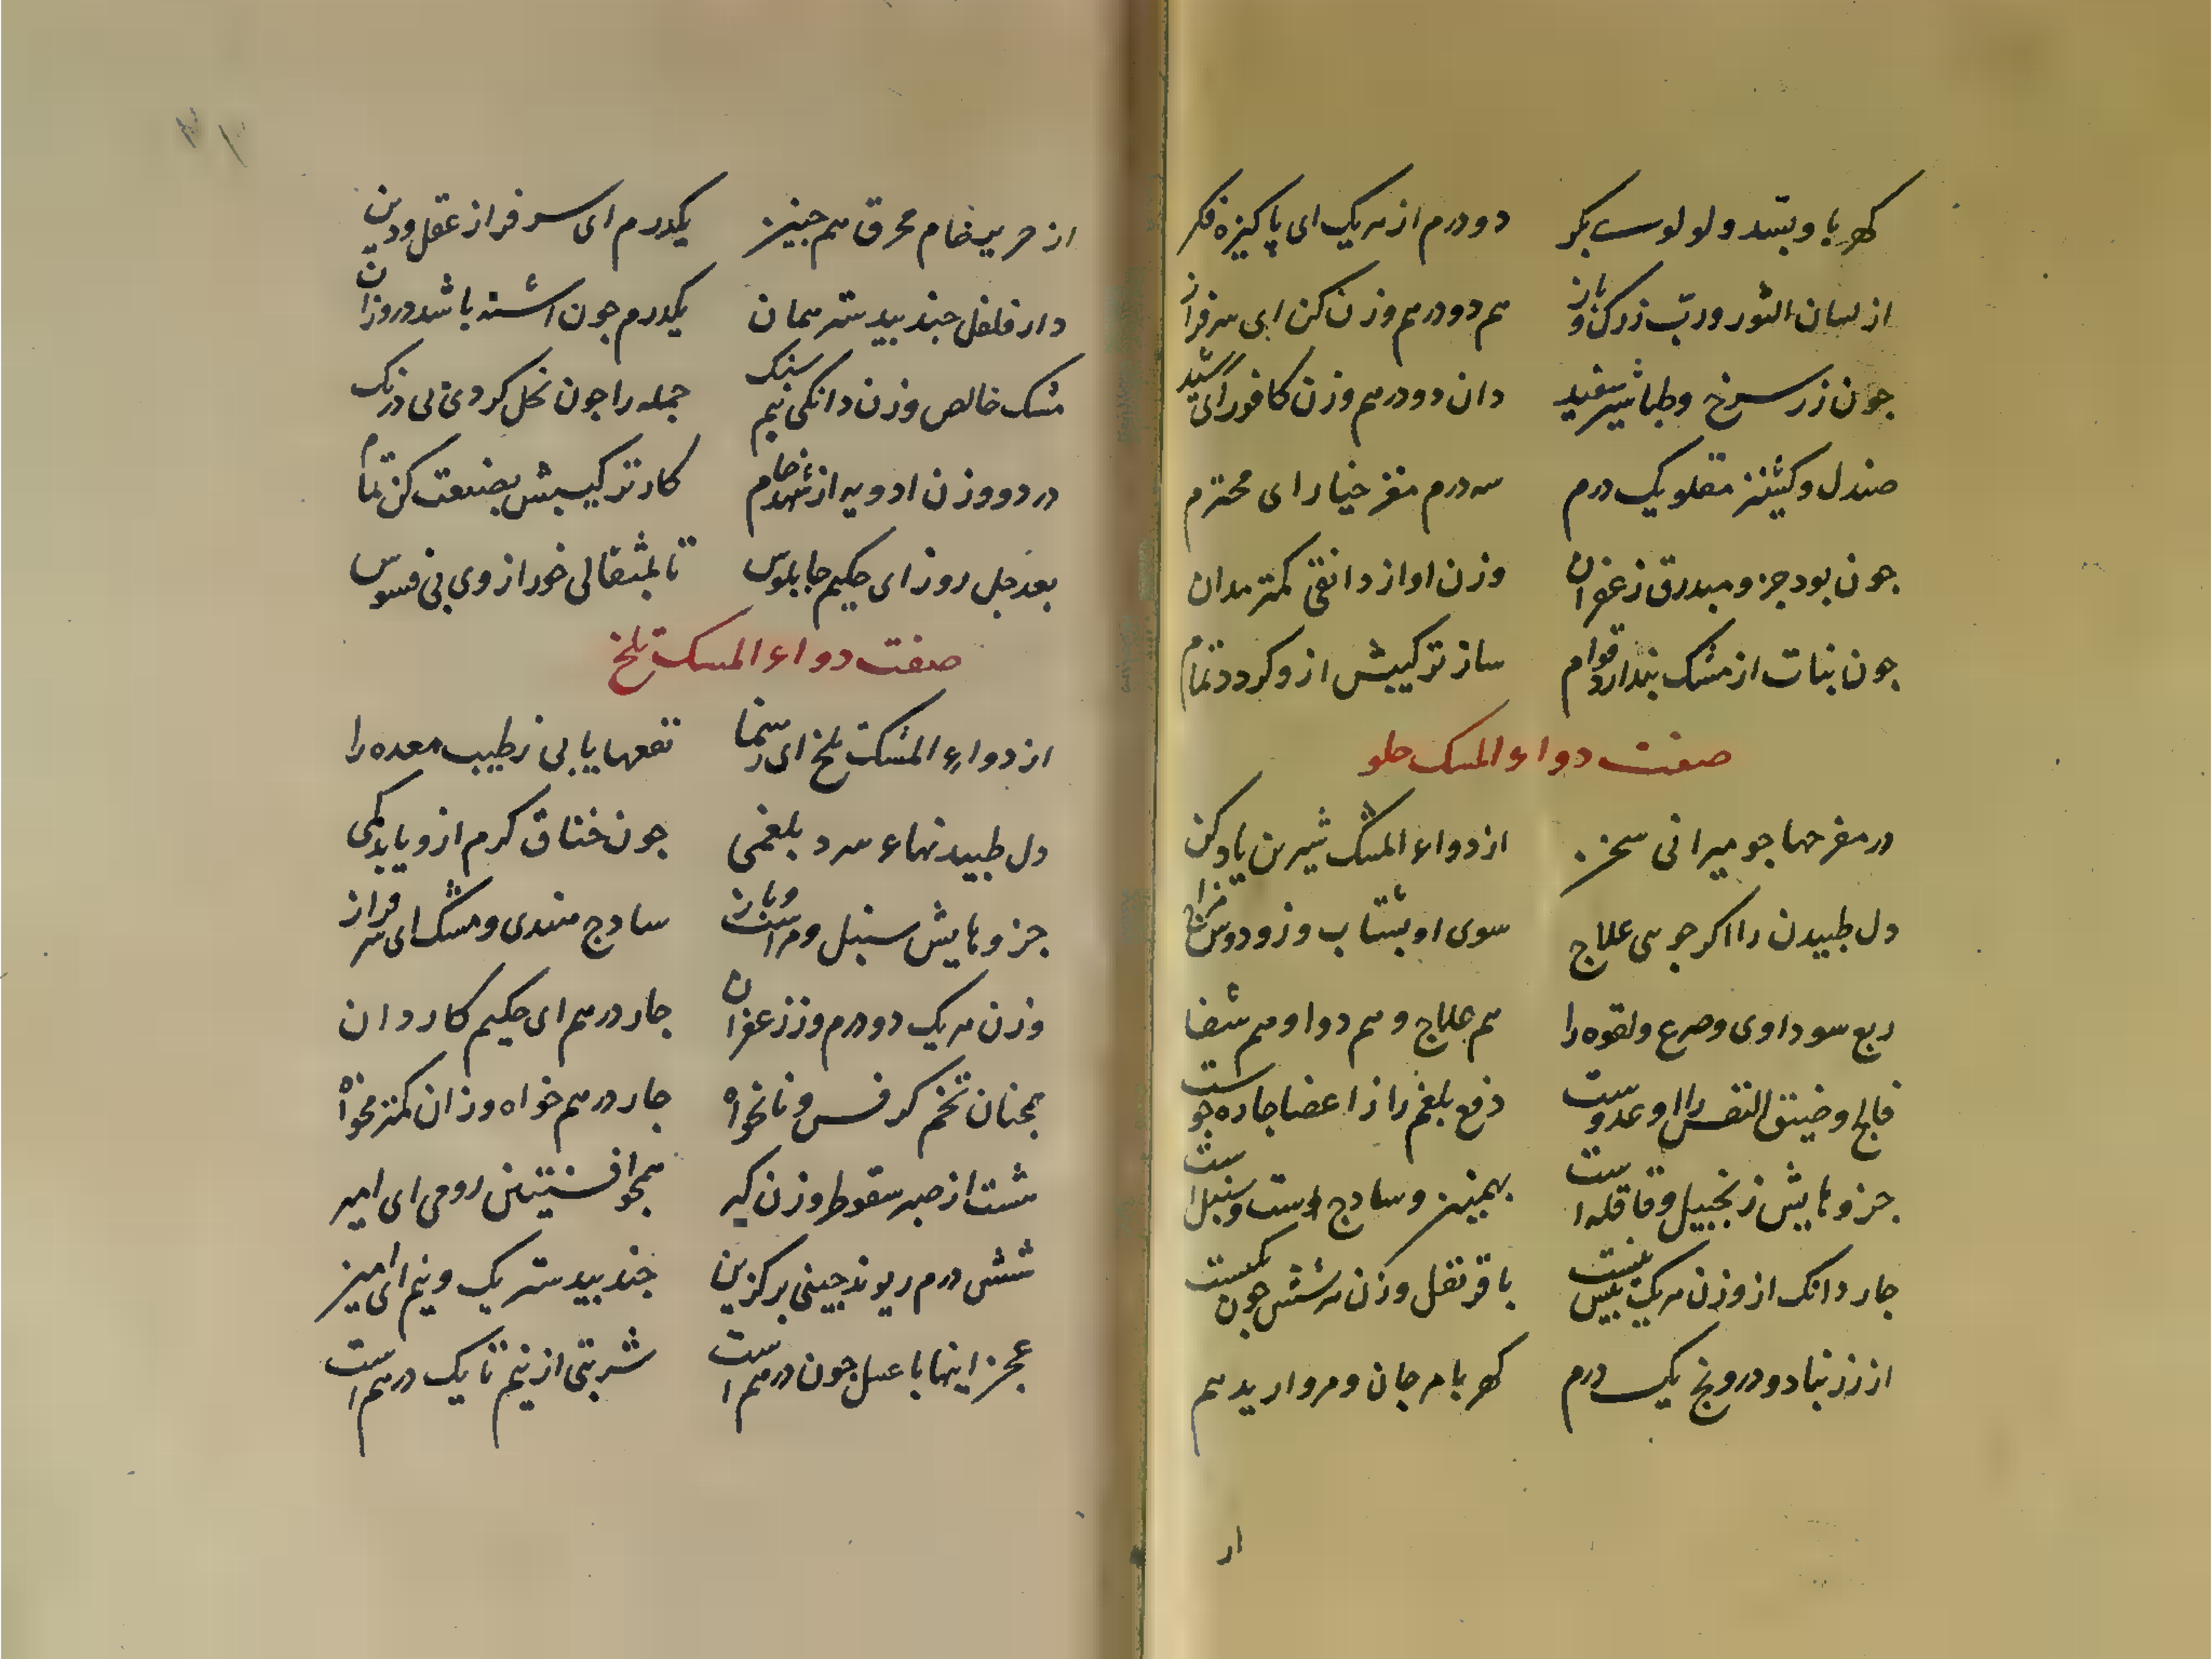 کهربا و بسد و لولوست بکر دو درم از هریک ای پاکیزه فکر
از لسان الثور و رب زرک و باز هم دو درهم وزن کن ای سرفراز
جون زر سرخ و طباشیر سفید دان دو درهم وزن کافور ای
صندل و کشنیز مقلو یک درم سه درم مغز خیار ای محترم
جون بود جزو مبدرق زعفران وزن او از دانقی کمتر مدان
جون بنات از مشک بندارد قوام ساز ترکیبش ازو کردد تمام
صفت دواء المسک حلو
در مفرحها جو میرانی سخن از دواء المشک شیرین یاد کن
دل طبیدن را اکر جوهی علاج سوی او بشتاب و زو دوش مزاج
ربع سوداوی و صرع و لقوه را هم علاج و هم دوا و هم شفا
فالج و ضیق النفس را او عدوست دفع بلغم را از اعضا جاره جوست
جزوهایش زنجبیل و قاقله است بهمنین و سادج است و سنبل است
جار دانک از وزن هریک بیش نیست با قرنفل وزن هر شش جون یکیست
از زرنباد و درونج یک درم کهربا مرجان و مروارید هم
از
از حریر خام محرق هم جنین یکدرم ای سرفراز عقل و دین
دارفلفل جندبیدستر همان یکدرم جون اشنه باشد در وزان
مشک خالص وزن دانکی نیم سنک جمله را جون نخل کردی بی درنک
در دو وزن ادویه از شهد خام کار ترکیبش بصنعت کن تمام
بعد جل روز ای حکیم جابلوس تا بمثقالی خور از وی بی فسوس
صفت دواء المسک تلخ
از دواء المشک تلخ ای رهنما نفعها یابی ز طبیب معده را
دل طبیدنهاء سرد بلغمی جون خناق کرم ازو یابد کمی
جزوهایش سنبل و مراست و باز سادج هندی و مشک ای سرفراز
وزن هریک دو درم وز زعفران جار درهم ای حکیم کاردان
همجنان تخم کرفس و نانخواه جار درهم خواه وزان کمتر مخواه
هشت از صبر سقوطر وزن کیر همجو افسنتین رومی ای امیر
شش درم ریوند جینی برکزین جندبیدستر یک و نیم ای امین
عجز اینها با عسل جون درهم است شربتی از نیم تا یک درهم است